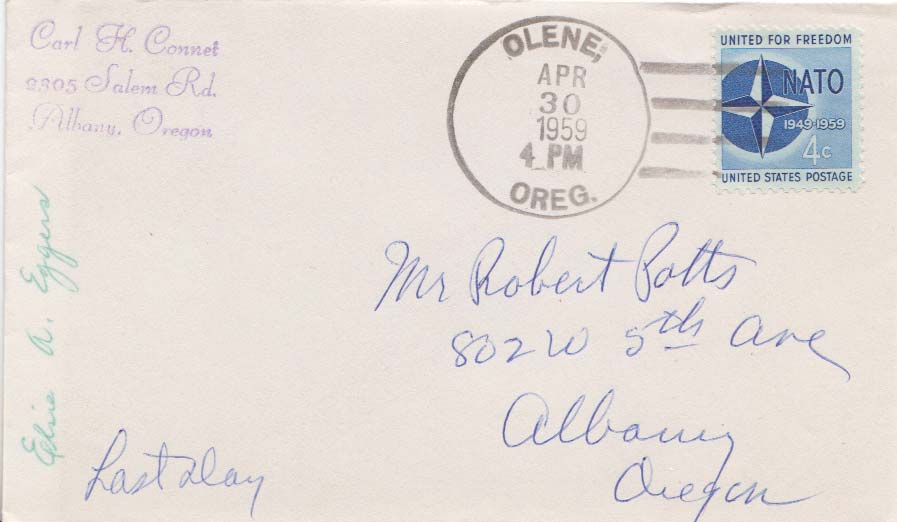 Carl H. Connet
2305 Salem Rd.
Albany, Oregon
OLENE,
APR
30
1959
4 PM
OREG.
UNITED FOR FREEDOM
NATO
1949-1959
4c
UNITED STATES POSTAGE
Mr Robert Potts
802 W 5th Ave
Albany
Oregon
Elsie A. Eggers
Last Day